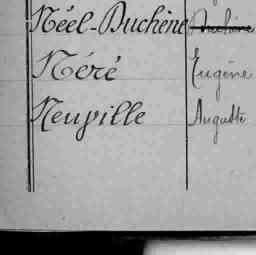 Néel-Duchêne
Néré Eugène
Neuville Auguste